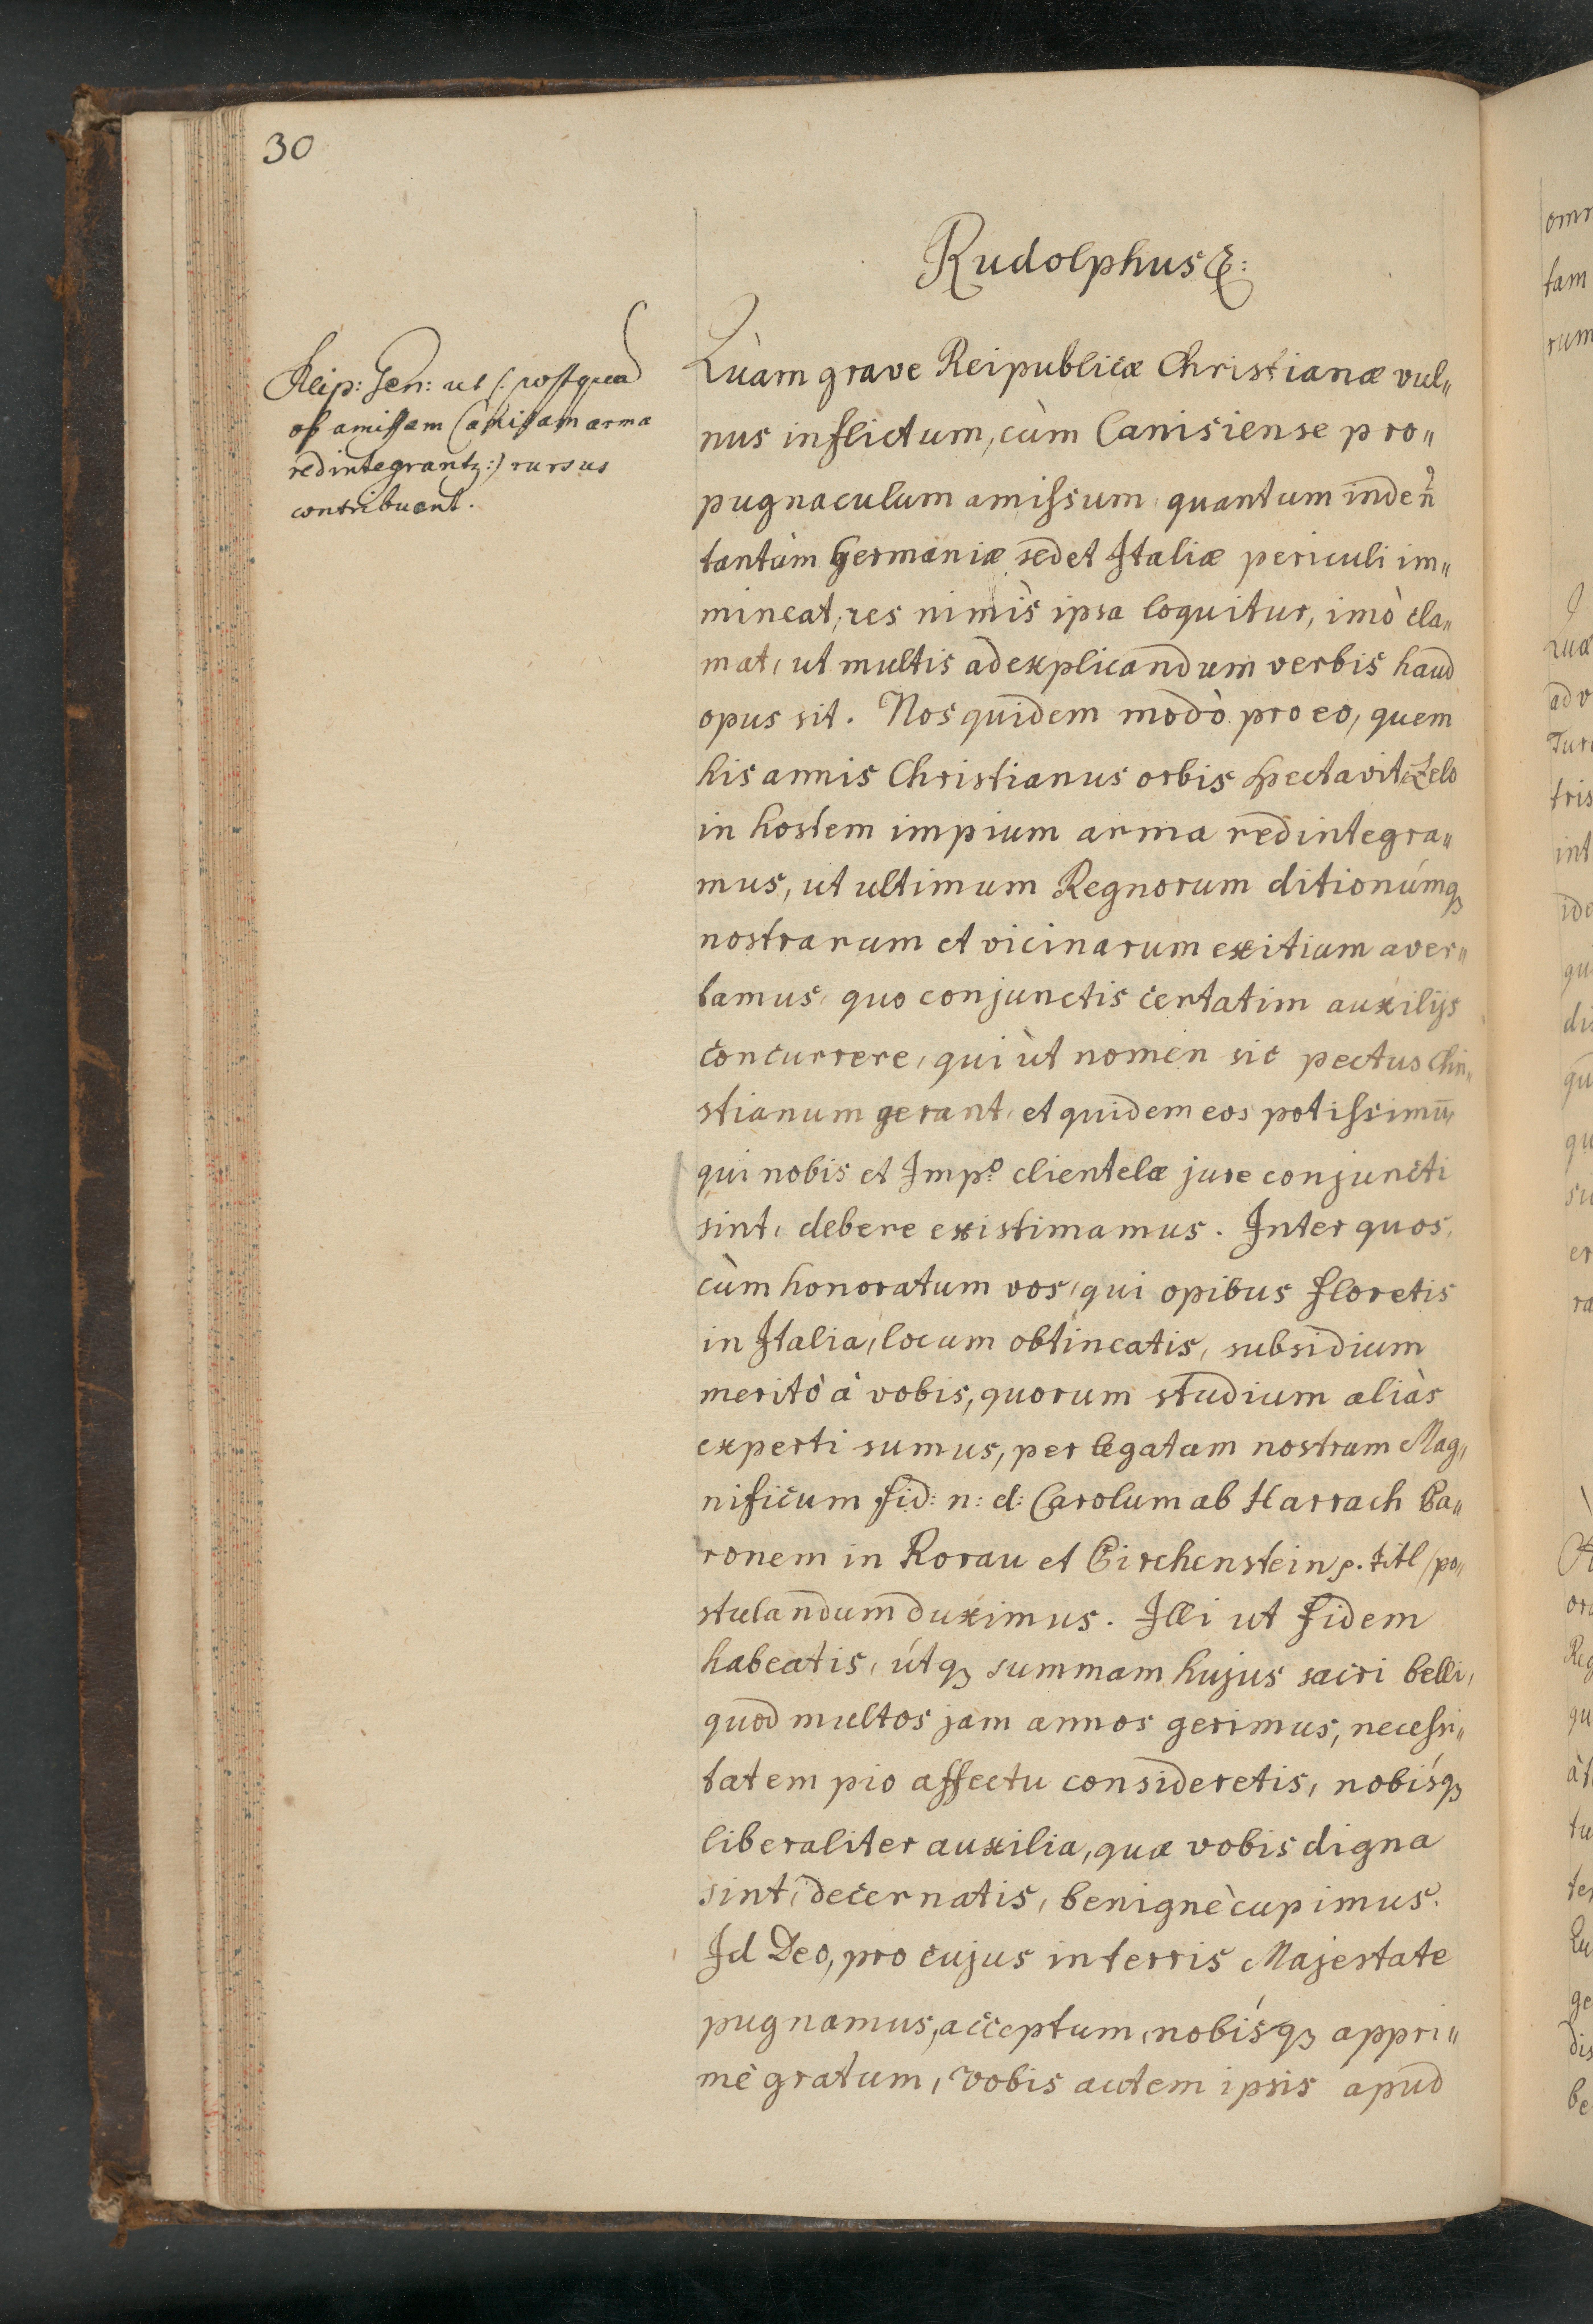 30
Rudolphus &:
Reip: Gen: ut (: postquam
ob amissam Canisam arma
redintegrantz :) rursus
contribuant.
Quàm grave Reipublicæ Christianæ vul„
nus inflictum, cùm Canisiense pro„
pugnaculum amissum, quantum inde ñ
tantùm Germaniæ sed et Italiæ periculi im„
mineat, res nimis ipsa loquitur, imò cla„
mat, ut multis ad explicandum verbis haud
opus sit. Nos quidem modò pro eo, quem
his annis Christianus orbis spectavit, Zelo
in hostem impium arma redintegra„
mus, ut ultimum Regnorum ditionúmq₃
nostrarum et vicinarum exitium aver„
tamus, quo conjunctis certatim auxilijs
concurrere, qui ùt nomen sic pectus Chri„
stianum gerant, et quidem eos potissimū,
qui nobis et Impº clientelæ jure conjuncti
sint, debere existimamus. Inter quos,
cùm honoratum vos, qui opibus floretis
in Italia, locum obtineatis, subsidium
meritò à vobis, quorum studium aliàs
experti sumus, per legatum nostrum Mag„
nificum fid: n: d: Carolum ab Harrach Ba„
ronem in Rorau et Pirchenstein p. titl / po„
stulandum duximus. Illi ut fidem
habeatis, útq₃ summam hujus sacri belli,
quod multos jam annos gerimus, necessi„
tatem pio affectu consideretis, nobísq₃
liberaliter auxilia, quæ vobis digna
sint, decernatis, benignè cupimus.
Id Deo, pro cujus in terris Majestate
pugnamus, acceptum, nobísq₃ appri„
mè gratum, vobis autem ipsis apud